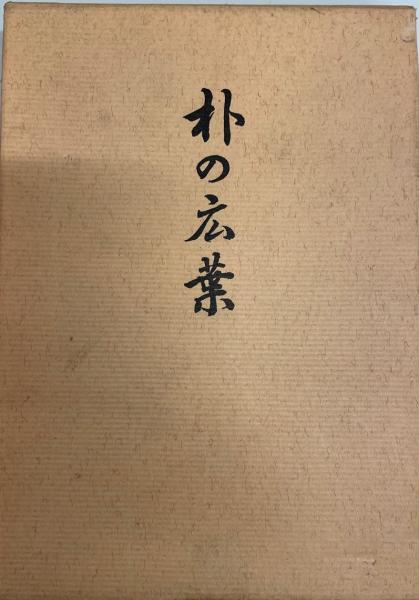 朴の広葉